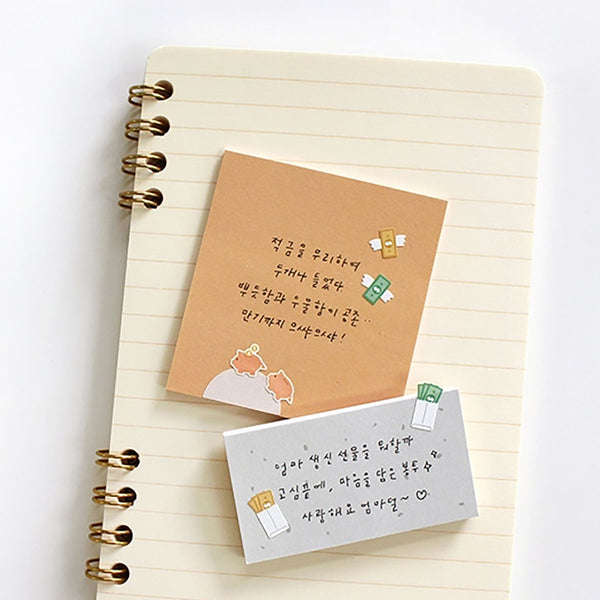 적금을 무리하여
두개나 들었다
뿌듯함과 우울함이 공존..
만기까지 으쌰으쌰!
엄마 생신 선물을 뭐할까
고심끝에, 마음을 담은 봉투
사랑해요 엄마덜~ ♡